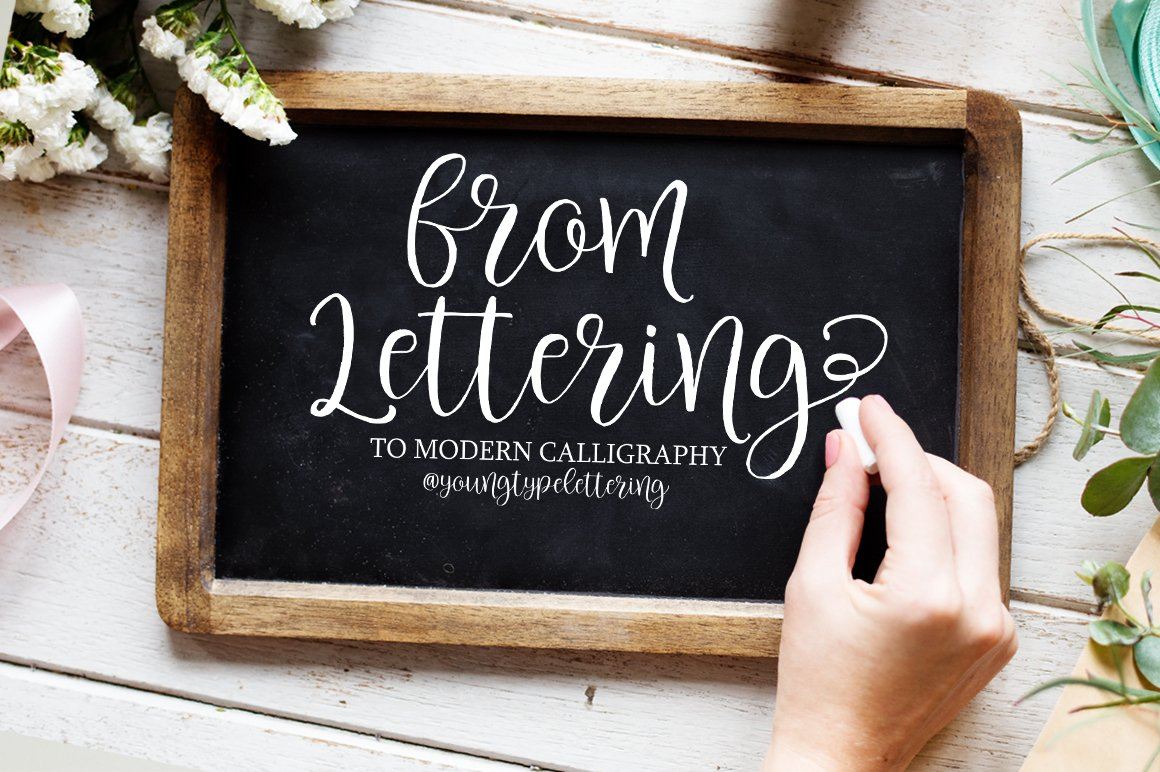 from
Lettering
TO MODERN CALLIGRAPHY
@youngtypelettering